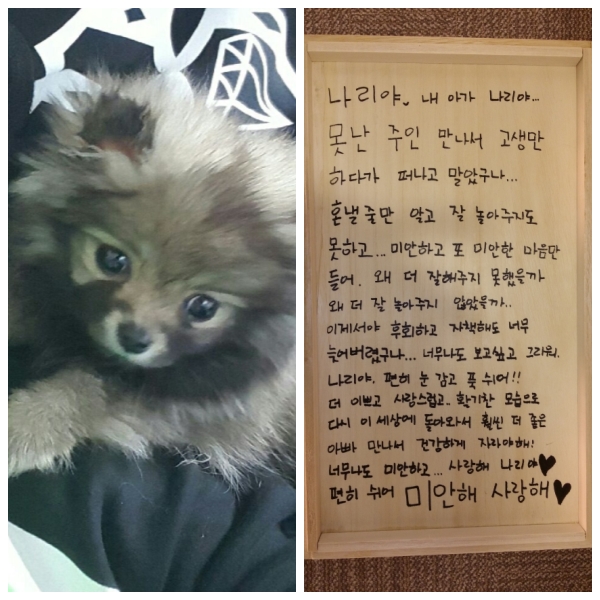 나리야. 내 아가 나리야...
못난 주인 만나서 고생만
하다가 떠나고 말았구나...
혼낼줄만 알고 잘 놀아주지도
못하고... 미안하고 또 미안한 마음만
들어. 왜 더 잘해주지 못했을까
왜 더 잘 놀아주지 않았을까..
이제서야 후회하고 자책해도 너무
늦어버렸구나... 너무나도 보고싶고 그리워.
나리야. 편히 눈 감고 푹 쉬어!!
더 이쁘고 사랑스럽고.. 활기찬 모습으로
다시 이 세상에 돌아와서 훨씬 더 좋은
아빠 만나서 건강하게 자라야해!
너무나도 미안하고... 사랑해 나리야♥
편히 쉬어 미안해 사랑해♥